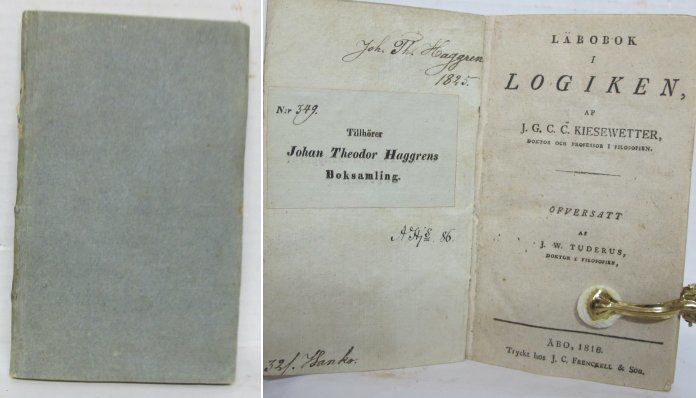 Joh. Th. Haggren
1825.
N:r 349.
Tillhörer
Johan Theodor Haggrens
Boksamling.
86.
32/. Banko.
LÄROBOK
I
LOGIKEN,
AF
J. G. C. C. KIESEWETTER,
DOKTOR OCH PROFESSOR I FILOSOFIEN.
ÖFVERSATT
AF
J. W. TUDERUS,
DOKTOR I FILOSOFIEN,
ÅBO, 1818.
Tryckt hos J. C. FRENCKELL & SON.